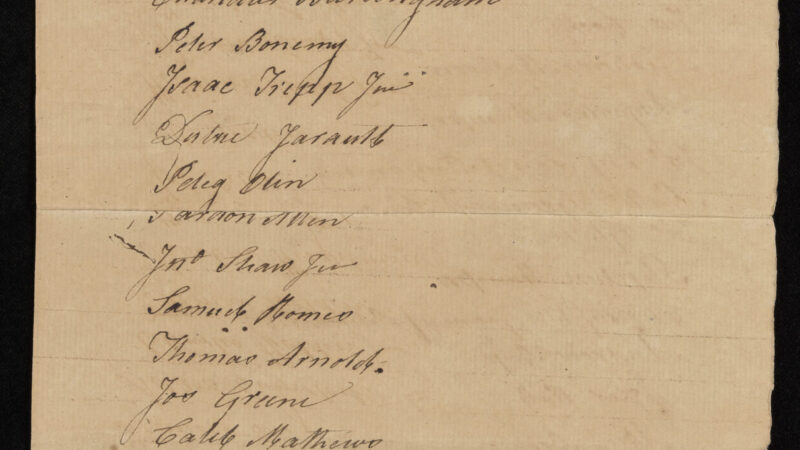 Peter Bonemy
Isaac Tripp Jun
Jarault
Peleg Olin
Pardon Allen
Jno Shaw Jur
Samuel Homes
Thomas Arnold.
Jos Greene
Caleb Mathews